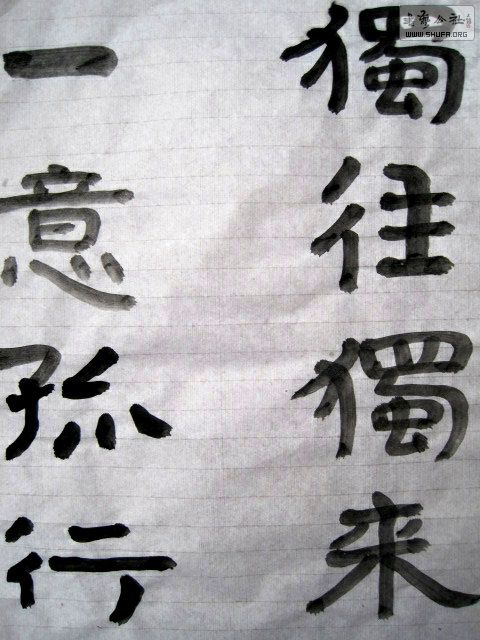 獨往獨來
一意孤行
公社
WWW.SHUFA.ORG